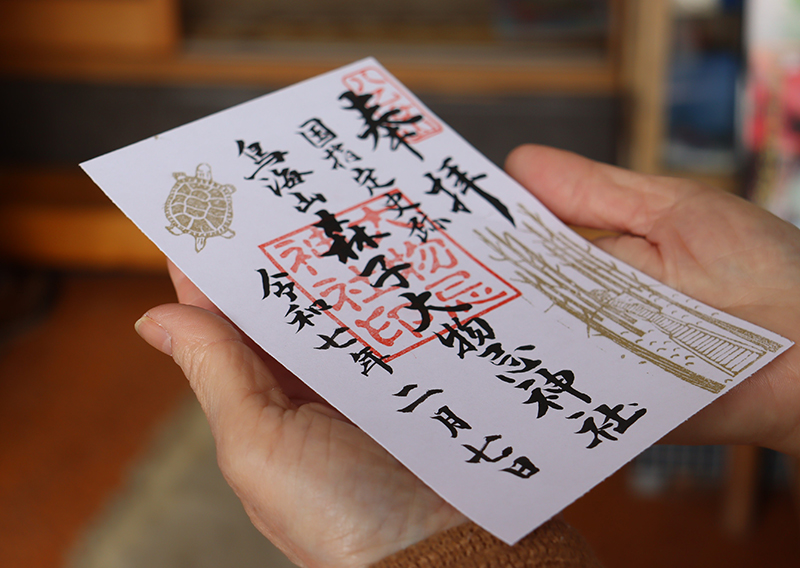 奉拝
国指定史跡
鳥海山
森子大物忌神社
令和七年
二月七日
大物忌
神社印